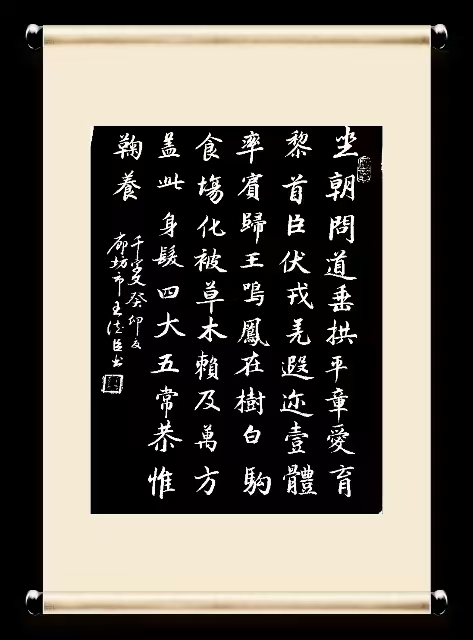 坐朝問道垂拱平章愛育
黎首臣伏戎羌遐迩壹體
率賓歸王鳴鳳在樹白駒
食場化被草木賴及萬方
盖此身髮四大五常恭惟
鞠養
千字文癸卯夏
廊坊市王臣书